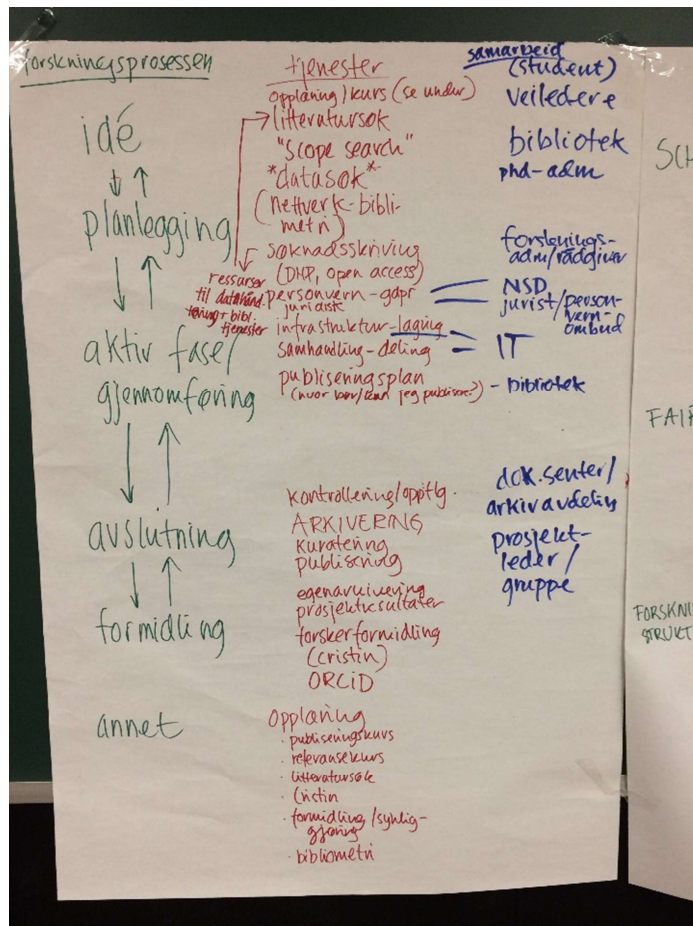 forskningsprosessen
idé
planlegging
aktiv fase/
gjennomføring
avslutning
formidling
annet
tjenester
opplæring/kurs (se under)
litteratursøk
"scope search"
*datasøk*
(nettverk-bibli-
metri)
søknadsskriving
(DMP, open access)
ressurser
til datahånd.
tering + bibl.
tjenester
personvern - gdpr
juridisk
infrastruktur - lagring
samhandling - deling
publiseringsplan
(hvor bør/kan jeg publisere?)
kontrollering/oppflg.
ARKIVERING
kuratering
publisering
egenarkivering
prosjektresultater
forskerformidling
(cristin)
ORCiD
Opplæring
· publiseringskurs
· relevansekurs
· litteratursøk
· Cristin
· formidling/synlig-
gjøring
· bibliometri
samarbeid
(student)
veiledere
bibliotek
phd-adm
forsknings-
adm/rådgiver
NSD
jurist/person-
vern-
ombud
IT
- bibliotek
dok.senter/
arkivavdeling
prosjekt-
leder/
gruppe
SCH
FAIR
FORSKNI
STRUKT